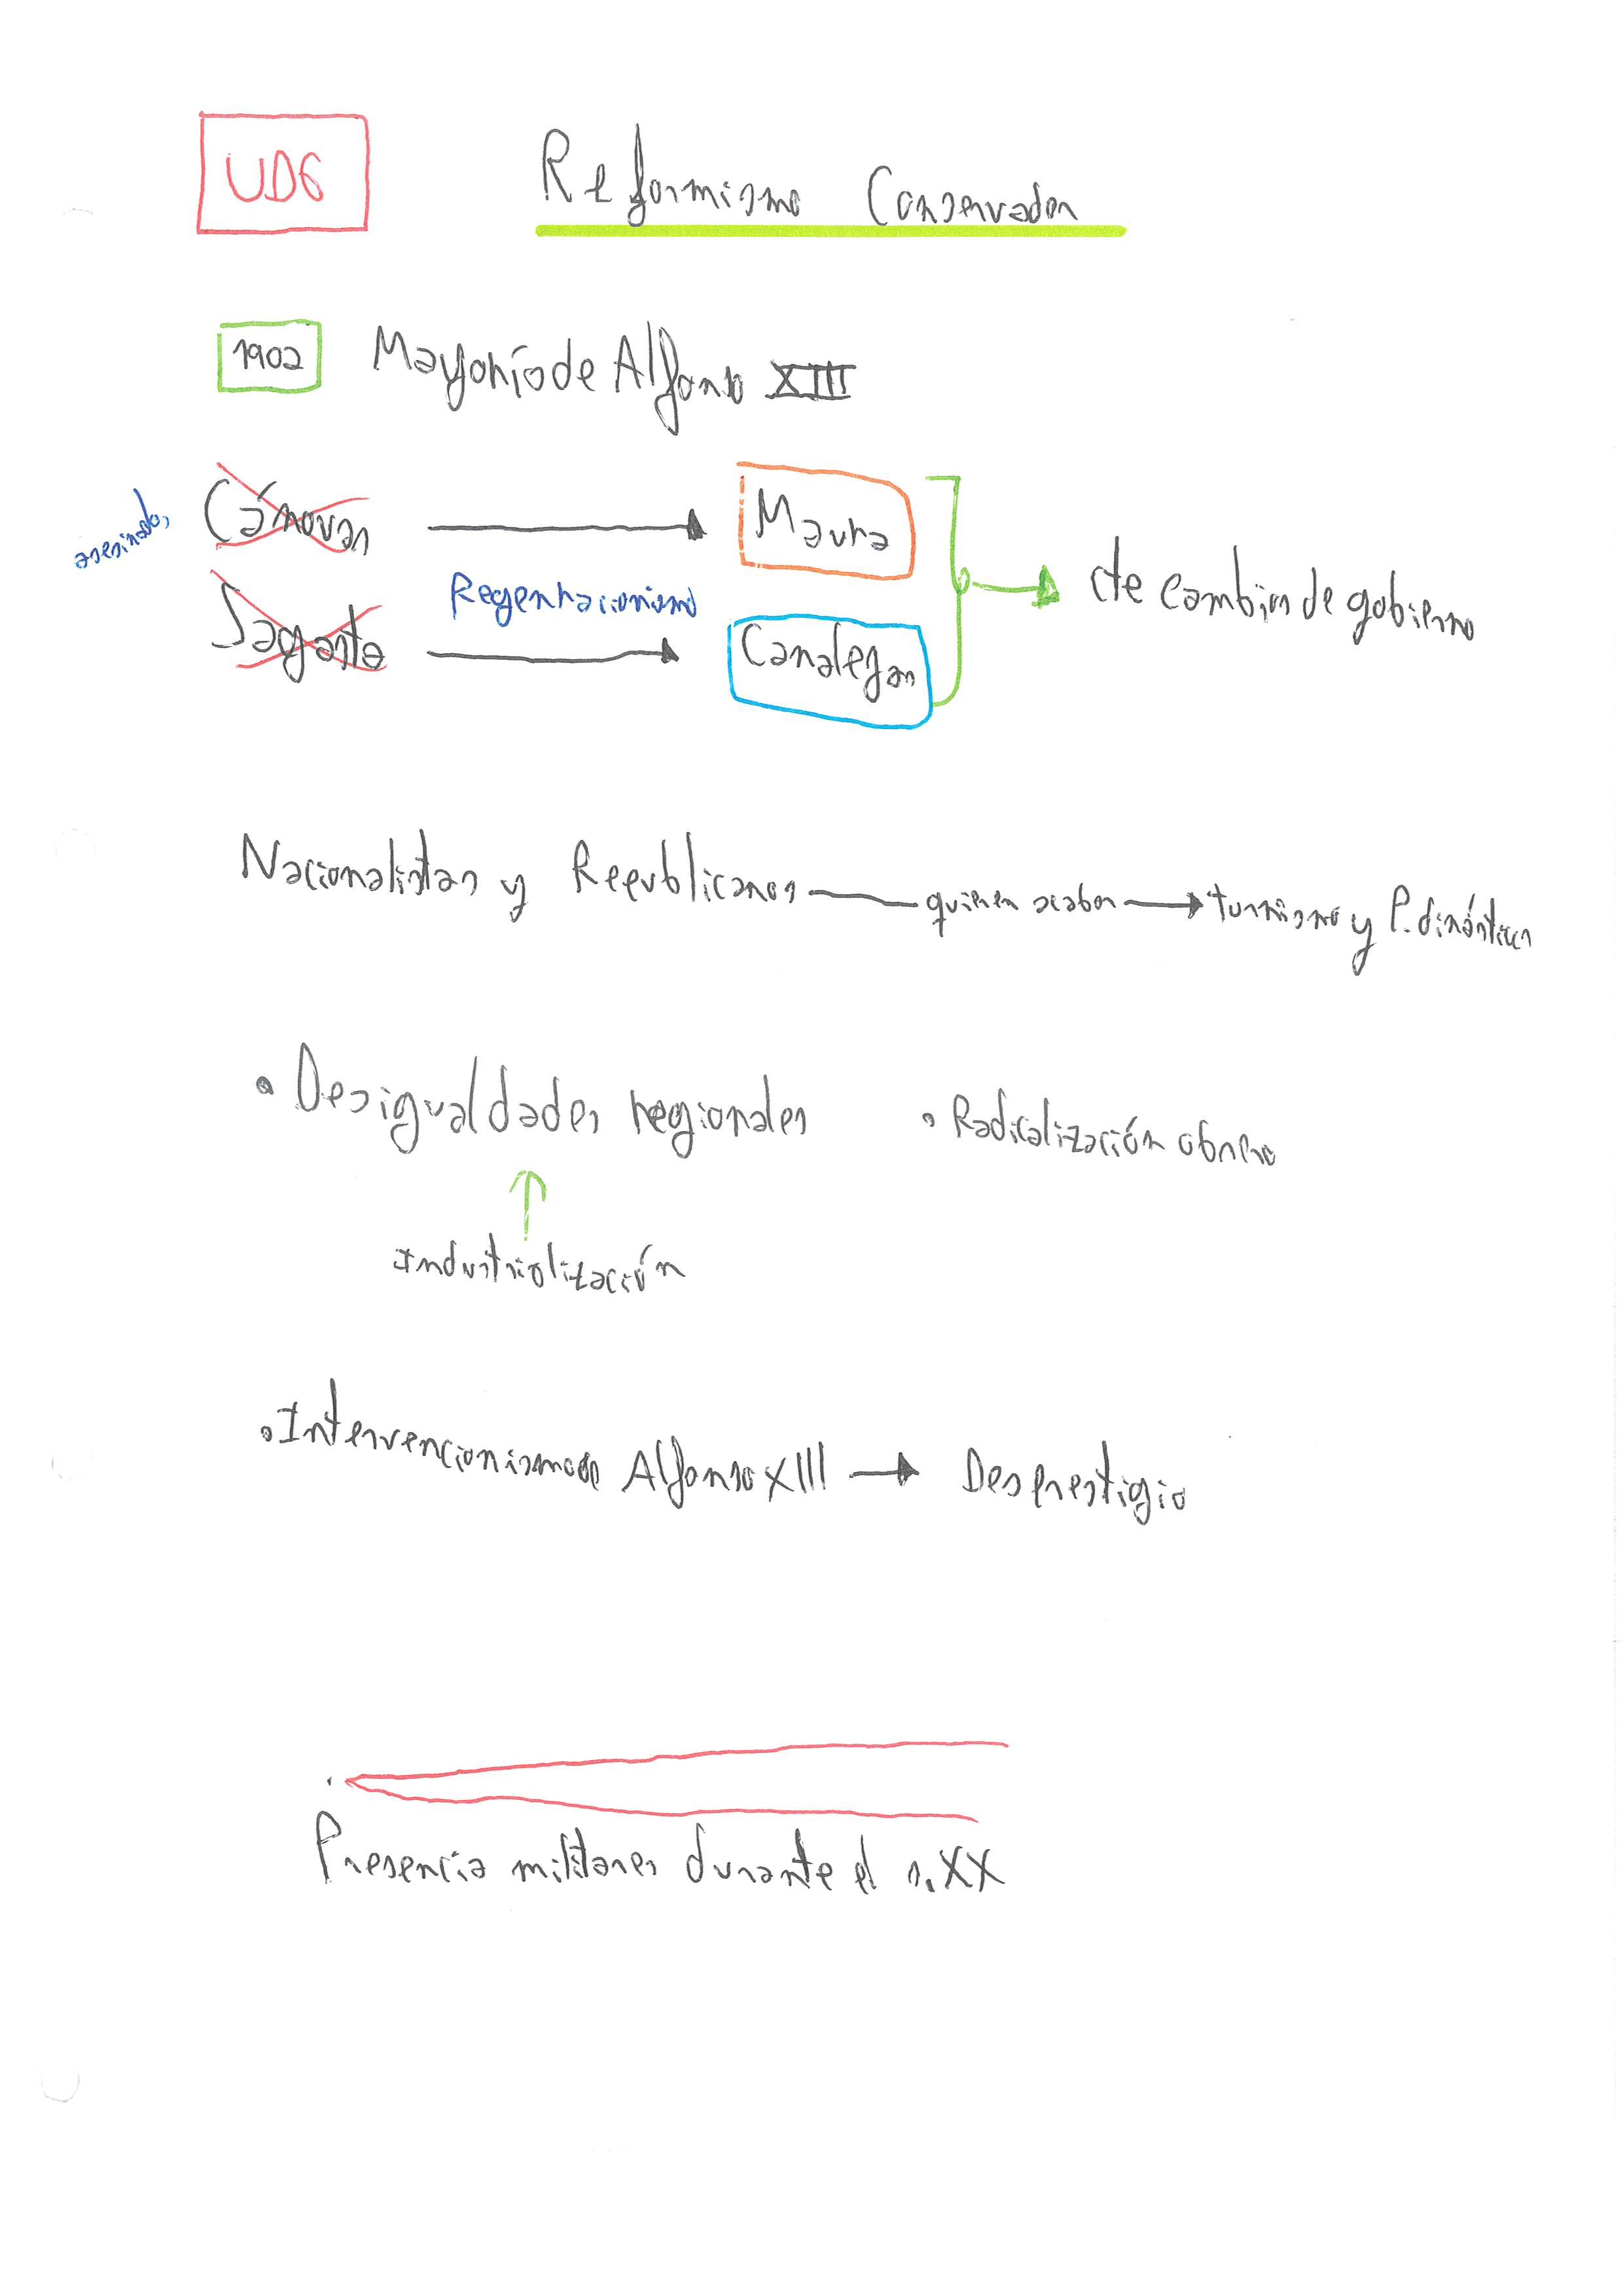 UD6
Reformismo Conservador
1902 Mayoría de Alfonso XIII
asesinado,
Cánovas
Maura
Regeneracionismo
cte cambios de gobierno
Sagasta
Canalejas
Nacionalistas y Republicanos quieren acabar turnismo y P. dinásticos
• Desigualdades regionales • Radicalización obrero
Industrialización
• Intervencionismo de Alfonso XIII Desprestigio
Presencia militares durante el s.XX